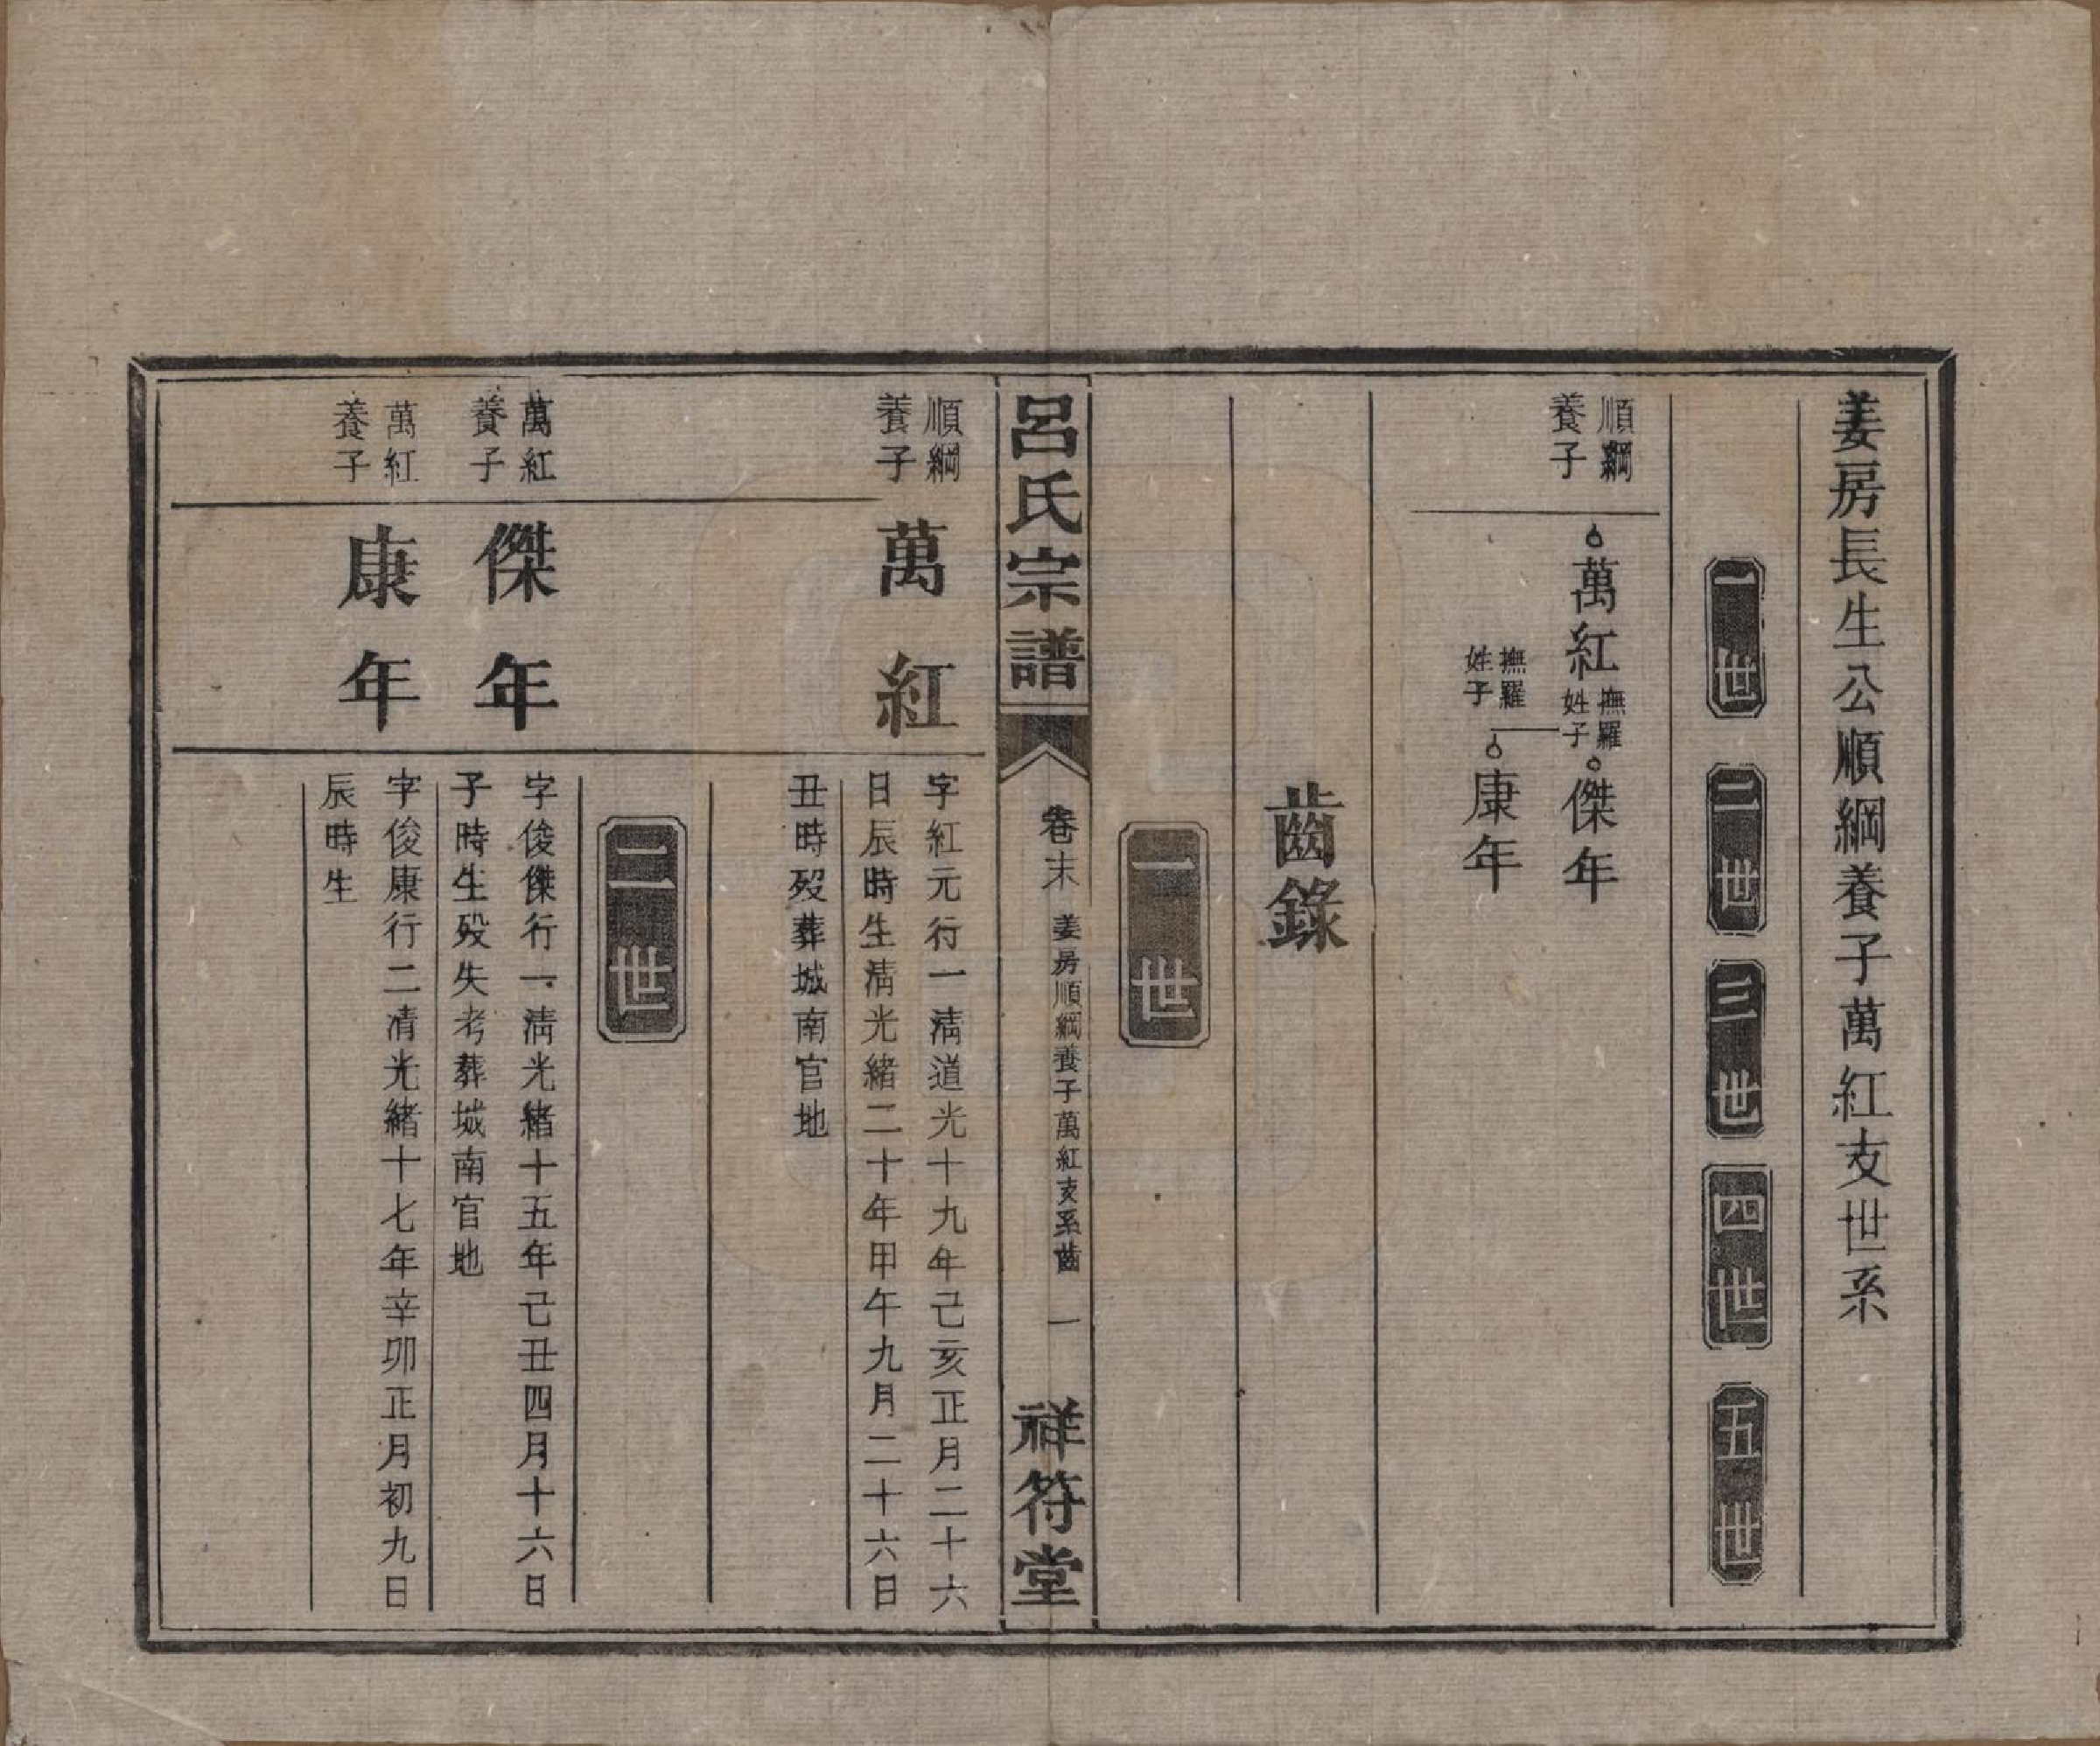 姜房長生公順綱養子萬紅支世系
一世
二世
三世
四世
五世
順綱
養子
萬紅
撫羅
姓子
傑年
撫羅
姓子
康年
齒錄
一世
呂氏宗譜
卷末
姜房順綱養子萬紅支系齒
一
祥符堂
順綱
養子
萬紅
字紅元行一清道光十九年己亥正月二十六
日辰時生清光緒二十年甲午九月二十六日
丑時歿葬城南官地
二世
萬紅
養子
傑年
字俊傑行一清光緒十五年己丑四月十六日
子時生歿失考葬城南官地
萬紅
養子
康年
字俊康行二清光緒十七年辛卯正月初九日
辰時生